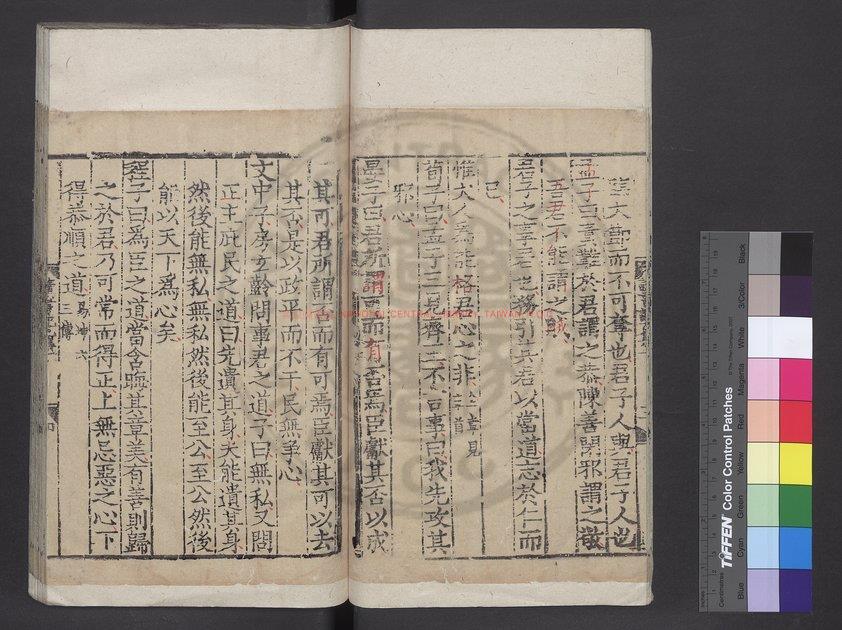 臨大節而不可奪也君子人與君子人也
孟子曰責難於君謂之恭陳善閉邪謂之敬
吾君不能謂之賊
君子之事君也務引其君以當道志於仁而
已
惟大人為能格君心之非
荀子曰孟子三見齊王不言事曰我先攻其
邪心
晏子曰君所謂可而有否焉臣獻其否以成
其可君所謂否而有可焉臣獻其可以去
其否是以政平而不干民無爭心
文中子房玄齡問事君之道子曰無私又問
正主庇民之道曰先遺其身夫能遺其身
然後能無私無私然後能至公至公然後
能以天下爲心矣
程子曰爲臣之道當含晦其章美有善則歸
之於君乃可常而得正上無忌惡之心下
得恭順之道易坤六三傳
TIFFEN Color Control Patches
Blue Cyan Green Yellow Red Magenta White 3/Color Black
Centimetres
Inches